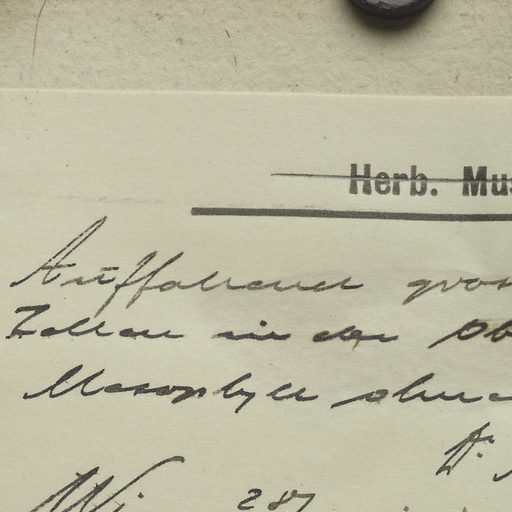 Herb. Mus
Auffallend gros
Zellen in der Ob
Mesophyll ohne
Dr.
287